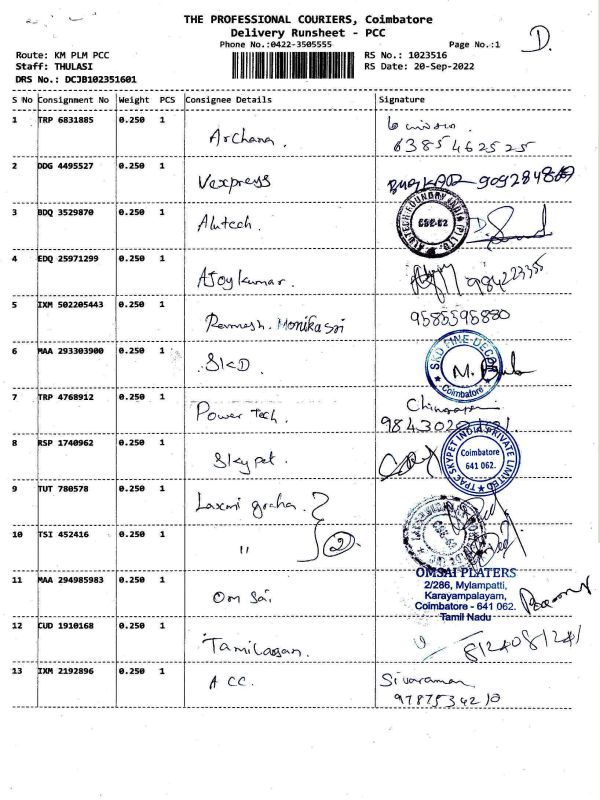 THE PROFESSIONAL COURIERS, Coimbatore
Delivery Runsheet - PCC
Phone No.:0422-3505555
Page No.:1
D.
Route: KM PLM PCC
Staff: THULASI
DRS No.: DCJB102351601
RS No.: 1023516
RS Date: 20-Sep-2022
S No Consignment No Weight PCS Consignee Details Signature
1 TRP 6831885 0.250 1 Archana.
6385462525
2 DDG 4495527 0.250 1 Vexpress
3 BDQ 3529870 0.250 1 Alutech.
ALUTECH FOUNDRY INDIA (P) LTD.
4 EDQ 25971299 0.250 1 Ajoykumar.
5 IXM 502205443 0.250 1 Ramesh. Monikasri 9585595880
6 MAA 293303900 0.250 1 SKD
SKD FINE-DECOR
Coimbatore
7 TRP 4768912 0.250 1 Power tech.
8 RSP 1740962 0.250 1 Skypet.
TPAC SKYPET INDIA PRIVATE LIMITED
Coimbatore
641 062.
9 TUT 780578 0.250 1 Laxmi graha.
10 TSI 452416 0.250 1 " 2
11 MAA 294985983 0.250 1 Om Sai
OMSAI PLATERS
2/286, Mylampatti,
Karayampalayam,
Coimbatore - 641 062.
Tamil Nadu
12 CUD 1910168 0.250 1 Tamilarasan. 8124081241
13 IXM 2192896 0.250 1 ACC. Sivaraman
9787534210